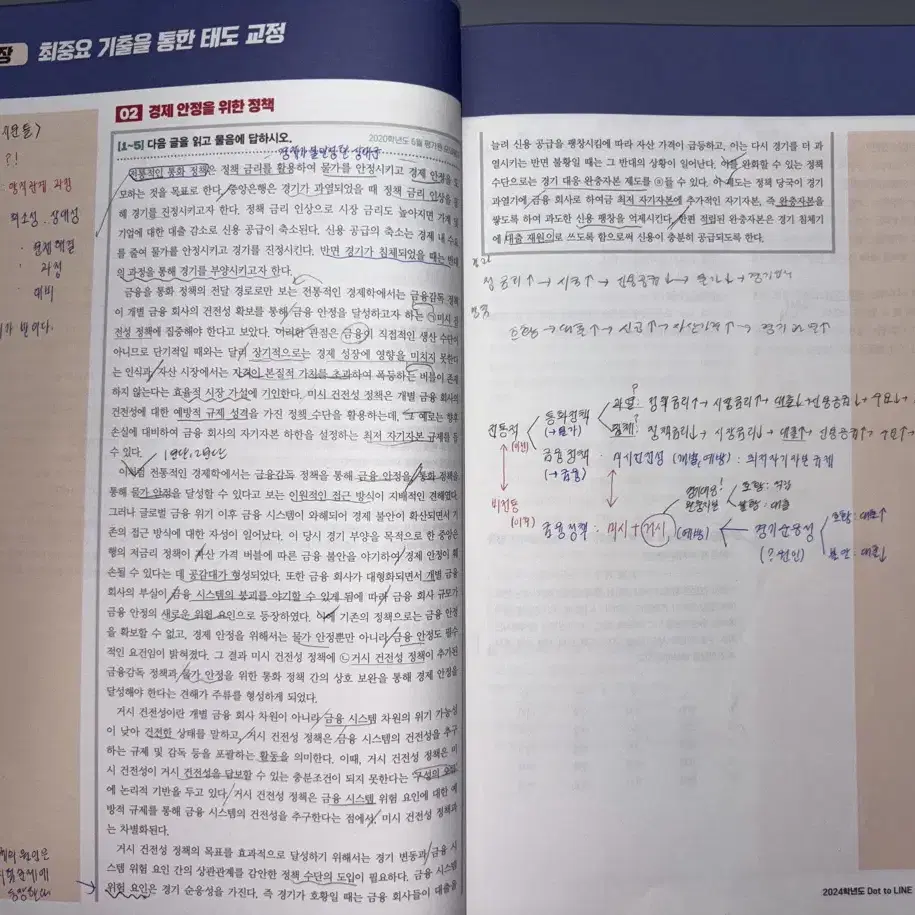 장 최중요 기출을 통한 태도 교정
02 경제 안정을 위한 정책
[1~5] 다음 글을 읽고 물음에 답하시오.
2020학년도 6월 평가원
전통적인 통화 정책은 정책 금리를 활용하여 물가를 안정시키고 경제 안정을 도
모하는 것을 목표로 한다. 중앙은행은 경기가 과열되었을 때 정책 금리 인상을 통
해 경기를 진정시키고자 한다. 정책 금리 인상으로 시장 금리도 높아지면 가계 및
기업에 대한 대출 감소로 신용 공급이 축소된다. 신용 공급의 축소는 경제 내 수요
를 줄여 물가를 안정시키고 경기를 진정시킨다. 반면 경기가 침체되었을 때는 반대
의 과정을 통해 경기를 부양시키고자 한다.
금융을 통화 정책의 전달 경로로만 보는 전통적인 경제학에서는 금융감독 정책
이 개별 금융 회사의 건전성 확보를 통해 금융 안정을 달성하고자 하는 ㉠미시 건
전성 정책에 집중해야 한다고 보았다. 이러한 관점은 금융이 직접적인 생산 수단이
아니므로 단기적일 때와는 달리 장기적으로는 경제 성장에 영향을 미치지 못한다
는 인식과, 자산 시장에서는 자산의 본질적 가치를 초과하여 폭등하는 버블이 존재
하지 않는다는 효율적 시장 가설에 기인한다. 미시 건전성 정책은 개별 금융 회사의
건전성에 대한 예방적 규제 성격을 가진 정책 수단을 활용하는데, 그 예로는 향후
손실에 대비하여 금융 회사의 자기자본 하한을 설정하는 최저 자기자본 규제를 들
수 있다.
이처럼 전통적인 경제학에서는 금융감독 정책을 통해 금융 안정을, 통화 정책을
통해 물가 안정을 달성할 수 있다고 보는 이원적인 접근 방식이 지배적인 견해였다.
그러나 글로벌 금융 위기 이후 금융 시스템이 와해되어 경제 불안이 확산되면서 기
존의 접근 방식에 대한 자성이 일어났다. 이 당시 경기 부양을 목적으로 한 중앙은
행의 저금리 정책이 자산 가격 버블에 따른 금융 불안을 야기하여 경제 안정이 훼
손될 수 있다는 데 공감대가 형성되었다. 또한 금융 회사가 대형화되면서 개별 금융
회사의 부실이 금융 시스템의 붕괴를 야기할 수 있게 됨에 따라 금융 회사 규모가
금융 안정의 새로운 위험 요인으로 등장하였다. 이에 기존의 정책으로는 금융 안정
을 확보할 수 없고, 경제 안정을 위해서는 물가 안정뿐만 아니라 금융 안정도 필수
적인 요건임이 밝혀졌다. 그 결과 미시 건전성 정책에 ㉡거시 건전성 정책이 추가된
금융감독 정책과 물가 안정을 위한 통화 정책 간의 상호 보완을 통해 경제 안정을
달성해야 한다는 견해가 주류를 형성하게 되었다.
거시 건전성이란 개별 금융 회사 차원이 아니라 금융 시스템 차원의 위기 가능성
이 낮아 건전한 상태를 말하고, 거시 건전성 정책은 금융 시스템의 건전성을 추구
하는 규제 및 감독 등을 포괄하는 활동을 의미한다. 이때, 거시 건전성 정책은 미
시 건전성이 거시 건전성을 담보할 수 있는 충분조건이 되지 못한다는 '구성의 오류'
에 논리적 기반을 두고 있다. 거시 건전성 정책은 금융 시스템 위험 요인에 대한 예
방적 규제를 통해 금융 시스템의 건전성을 추구한다는 점에서, 미시 건전성 정책과
는 차별화된다.
거시 건전성 정책의 목표를 효과적으로 달성하기 위해서는 경기 변동과 금융 시
스템 위험 요인 간의 상관관계를 감안한 정책 수단의 도입이 필요하다. 금융 시스템
위험 요인은 경기 순응성을 가진다. 즉 경기가 호황일 때는 금융 회사들이 대출을
늘려 신용 공급을 팽창시킴에 따라 자산 가격이 급등하고, 이는 다시 경기를 더 과
열시키는 반면 불황일 때는 그 반대의 상황이 일어난다. 이를 완화할 수 있는 정책
수단으로는 경기 대응 완충자본 제도를 ⓐ들 수 있다. 이 제도는 정책 당국이 경기
과열기에 금융 회사로 하여금 최저 자기자본에 추가적인 자기자본, 즉 완충자본을
쌓도록 하여 과도한 신용 팽창을 억제시킨다. 한편 적립된 완충자본은 경기 침체기
에 대출 재원으로 쓰도록 함으로써 신용이 충분히 공급되도록 한다.
호황 → 대출↑ → 신공↑ → 자산가격↑ →
전통적 통화정책 (→물가)
과열: 정책금리↑ → 시장금리↑ → 대출↓ → 신용공급↓ → 수요↓ →
침체: 정책금리↓ → 시장금리↓ → 대출↑ → 신용공급↑ → 수요↑ →
금융정책 (→금융) : 미시건전성 (개별, 예방) : 최저자기자본 규제
비전통 (이후)
금융정책 : 미시 + 거시 (예방) ← 경기순응성
호황: 대출↑
불황: 대출↓
2024학년도 Dot to LINE